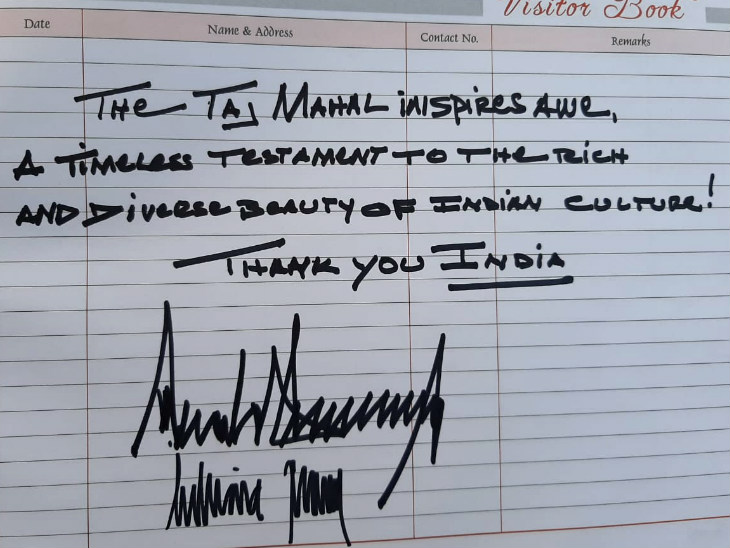 Visitor Book
Date Name & Address Contact No. Remarks
THE TAJ MAHAL INSPIRES AWE,
A TIMELESS TESTAMENT TO THE RICH
AND DIVERSE BEAUTY OF INDIAN CULTURE!
THANK YOU INDIA